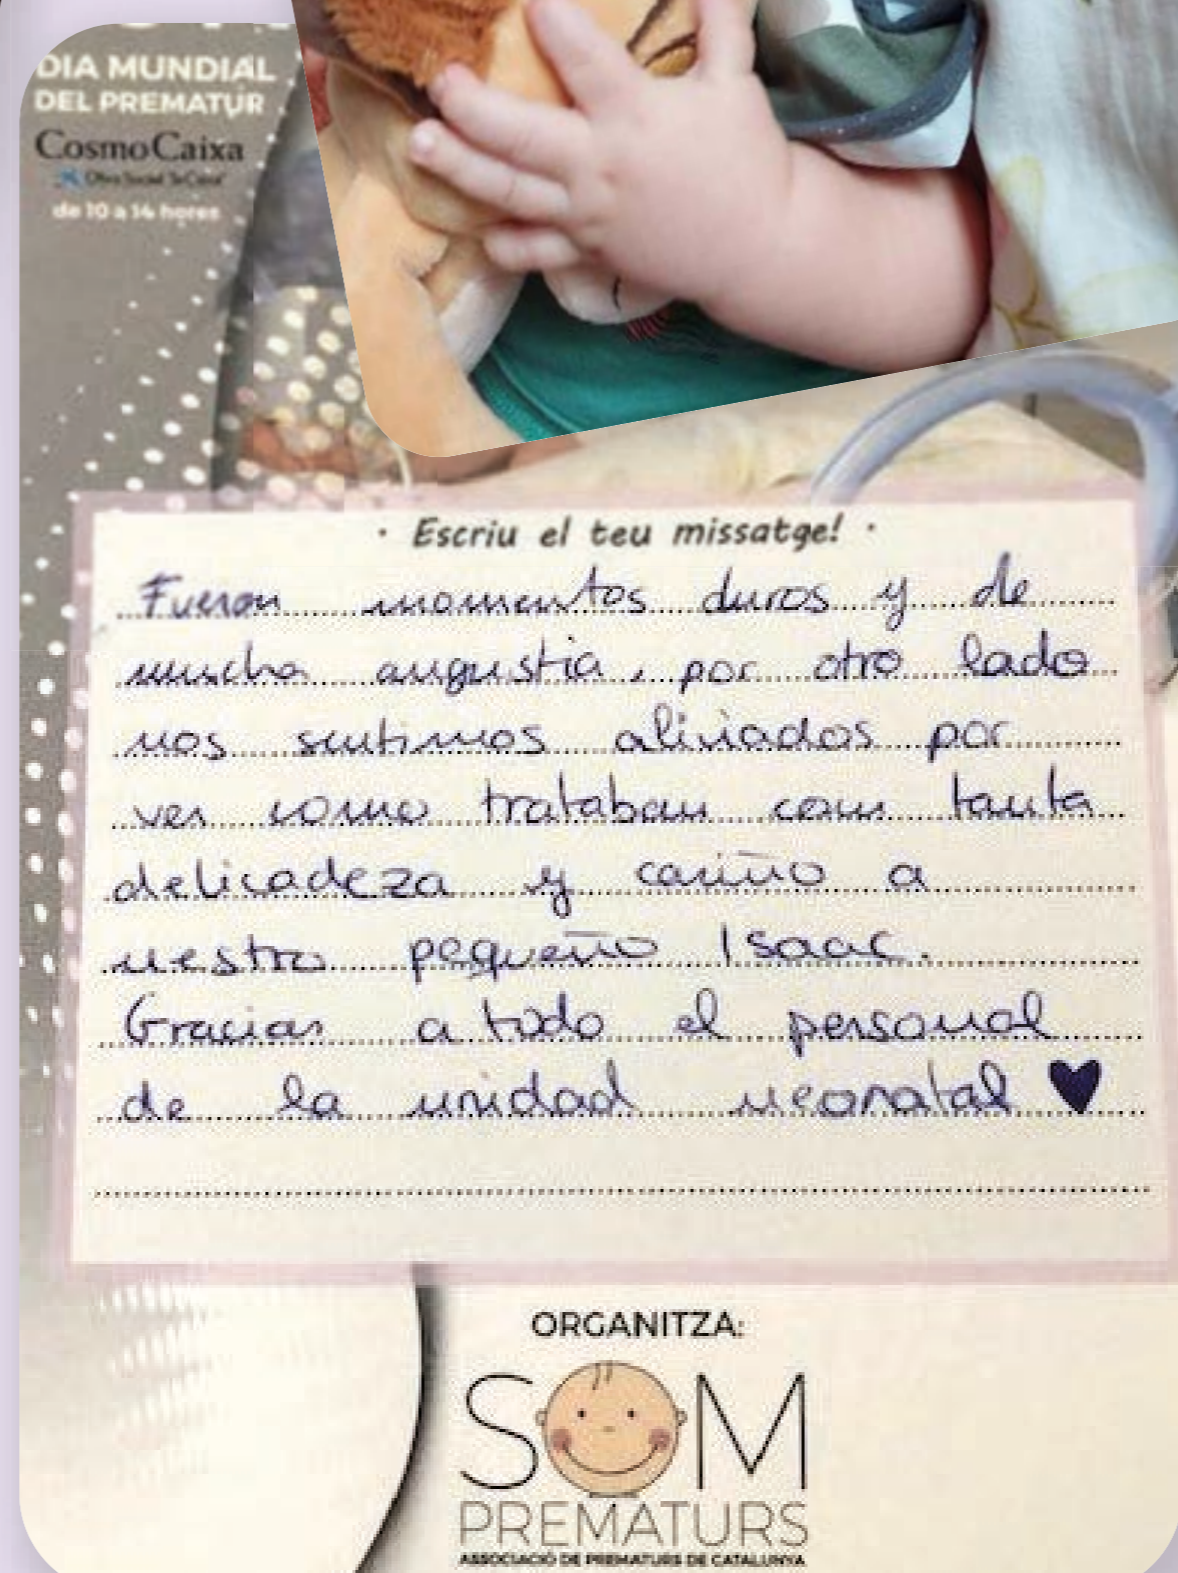 DIA MUNDIAL
DEL PREMATUR
CosmoCaixa
Obra Social "la Caixa"
de 10 a 14 hores
· Escriu el teu missatge! ·
Fueron momentos duros y de
mucha angustia, por otro lado
nos sentimos aliviados por
ver como trataban con tanta
delicadeza y cariño a
nestro pequeño Isaac.
Gracias a todo el personal
de la unidad neonatal ♥
ORGANITZA:
SOM
PREMATURS
ASSOCIACIÓ DE PREMATURS DE CATALUNYA